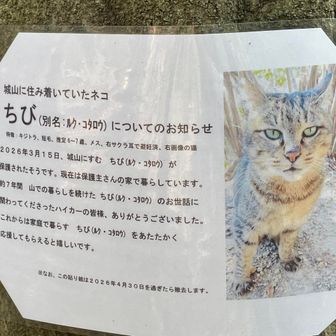 城山に住み着いていたネコ
ちび(別名:ルウ・コタロウ)についてのお知らせ
特徴:キジトラ、短毛、推定6~7歳、メス、右サクラ耳で避妊済、右画像の猫
2026年3月15日、城山にすむ ちび(ルウ・コタロウ) が
保護されたそうです。現在は保護主さんの家で暮らしています。
約7年間 山での暮らしを続けた ちび(ルウ・コタロウ) のお世話に
関わってくださったハイカーの皆様、ありがとうございました。
これからは家庭で暮らす ちび(ルウ・コタロウ) をあたたかく
応援してもらえると嬉しいです。
※なお、この貼り紙は2026年4月30日を過ぎたら撤去します。